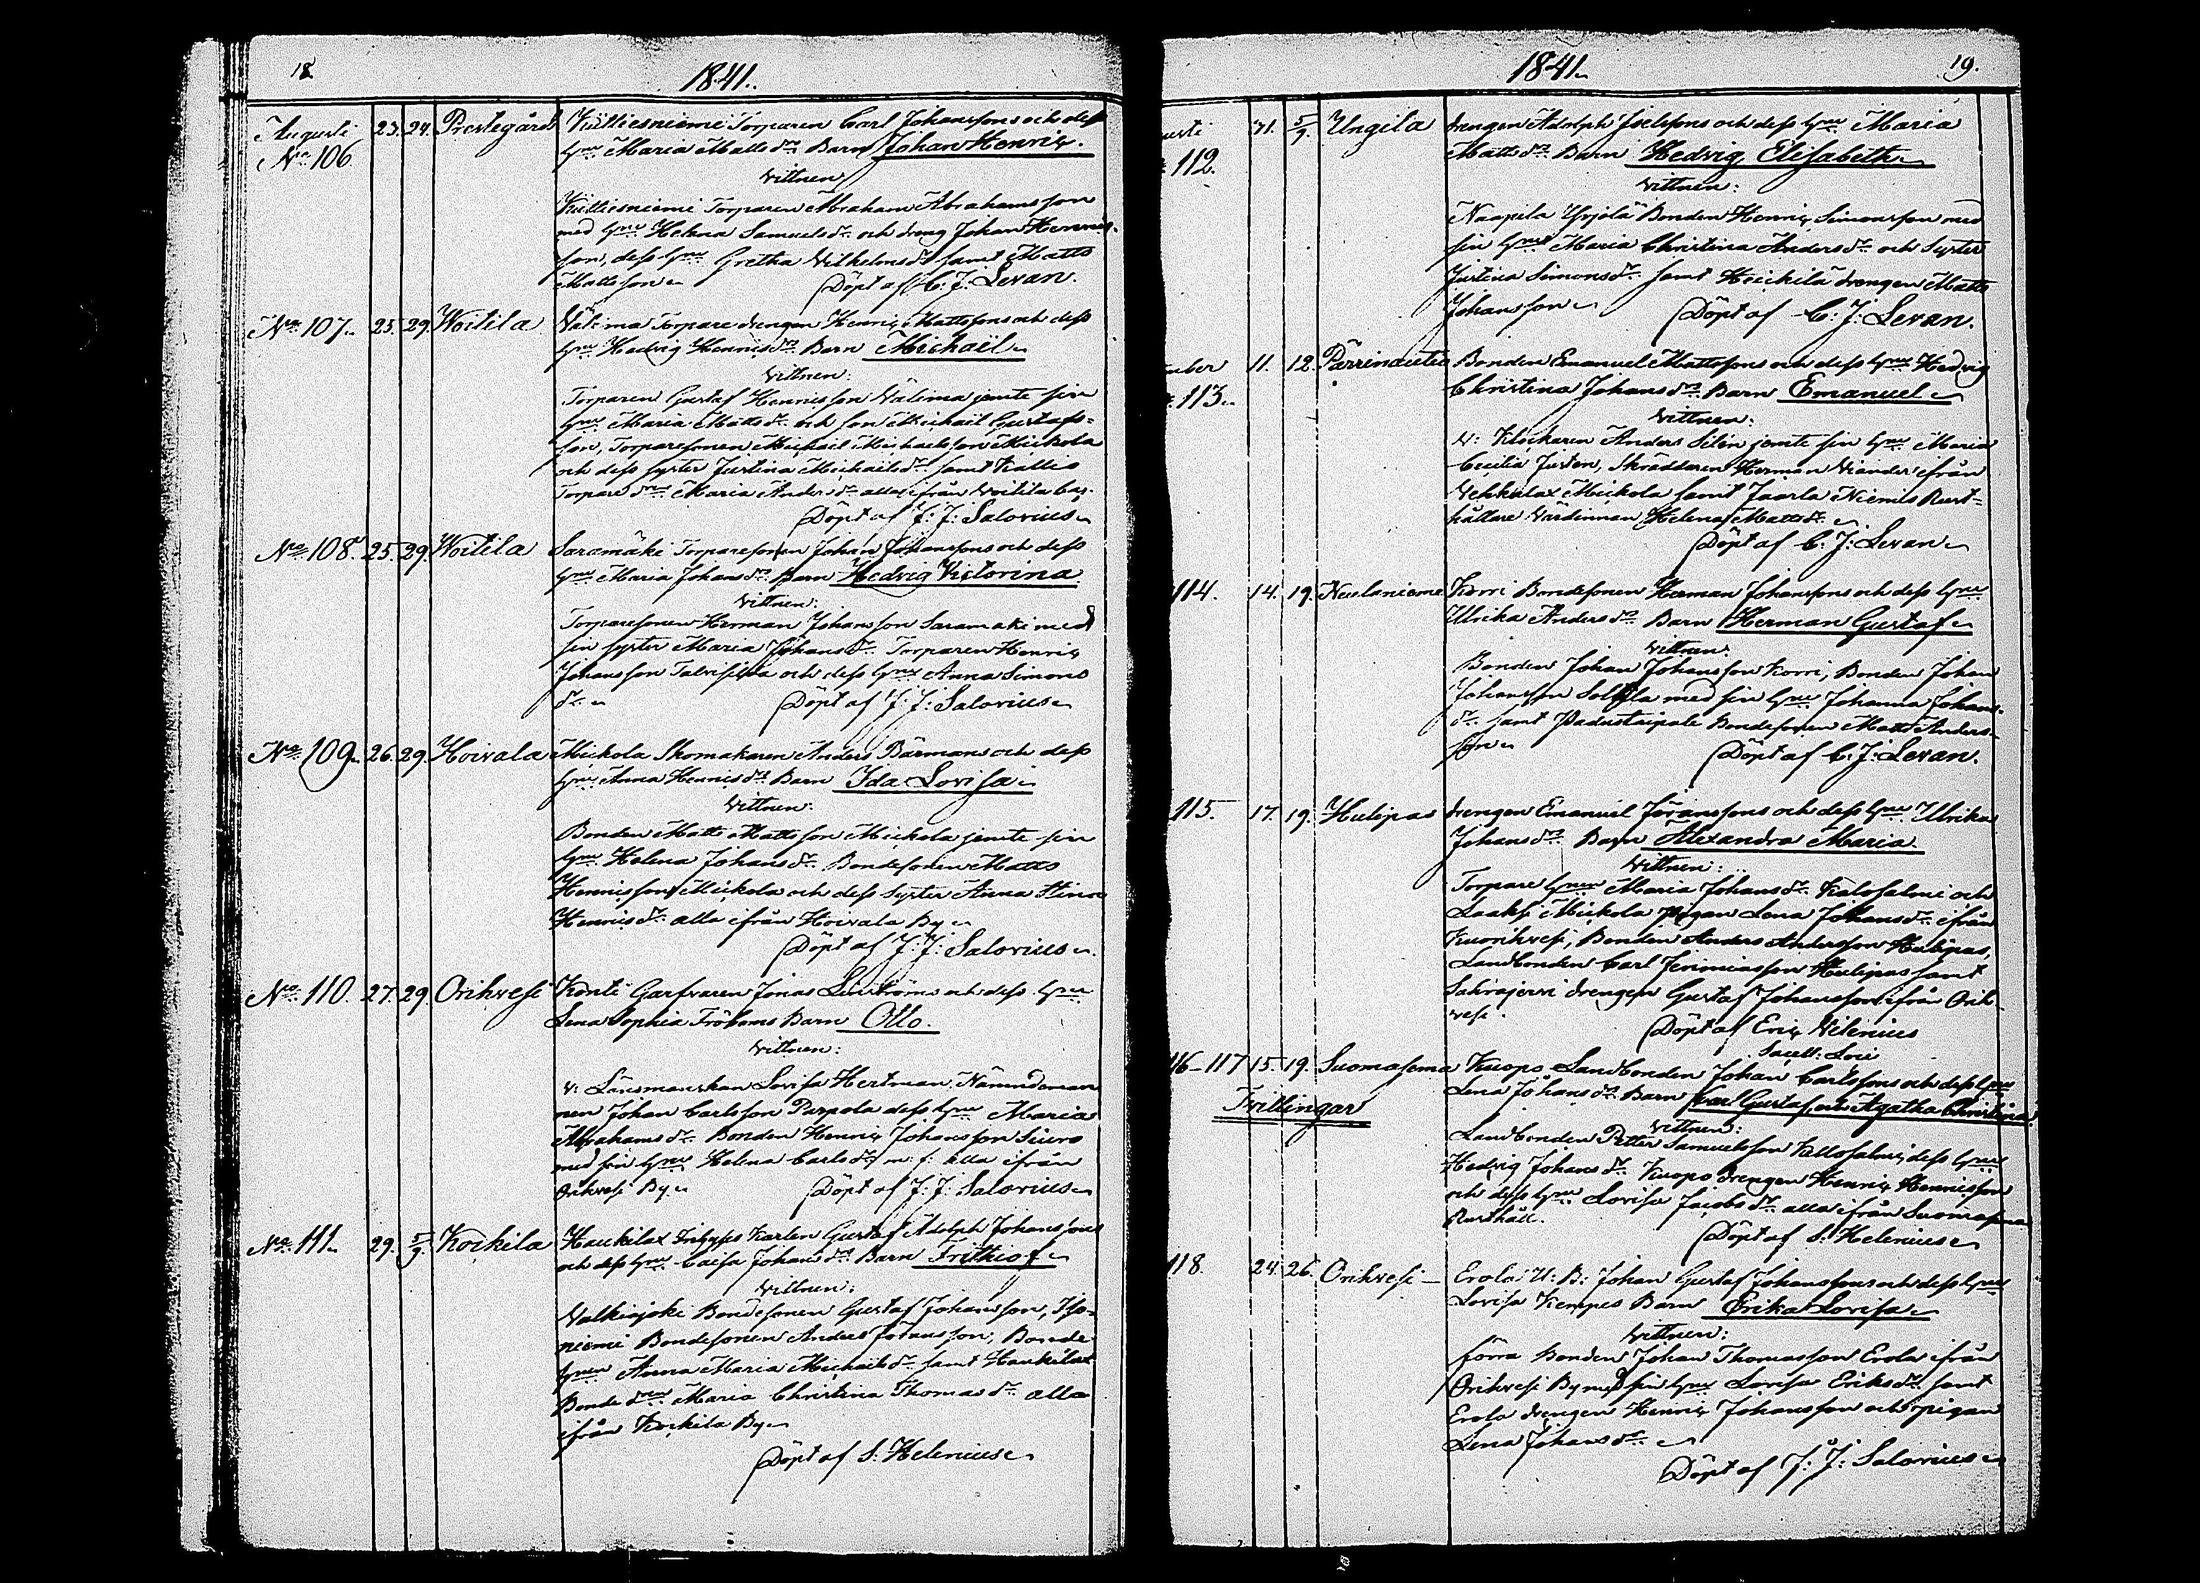 18.
1841.
Augusti 23. 24. Prestegård Torparen Carl Johanssons och dess
No 106 hru Maria Mattsdrs Barn Johan Henric.
Vittnen
Torparen Abraham Abrahamsson
med hru Helena Samuelsdr och dreng Johan Henrics-
son, dess hru Gretha Vilhelmsdr samt Matts
Mattsson Döpt af C. J: Levan.
No 107. 25. 29. Woitila Välima Torpare drengen Henric Mattssons och dess
hru Hedvig Henricsdrs Barn Michail
Vittnen:
Torparen Gustaf Henricsson Välima jemte sin
hru Maria Mattsdr och son Michail Gustafs-
son, Torparesonen Michail Michaelsson Mickola
och dess syster Justina Michailsdr samt Kallio
Torpare Maria Andersdr alla ifrån Woitila
Döpt af J: J: Salovius
No 108. 25. 29. Woitila Saramäki Torparesonen Johan Johanssons och dess
hru Maria Johansdrs Barn Hedvig Victorina
Vittnen:
Torparesonen Herman Johansson Saramäki med
sin syster Maria Johansdr Torparen Henric
Johansson och dess hru Anna Simons
dr Döpt af J: J: Salovius
No 109. 26. 29. Hoivala Mickola Skomakaren Anders Bärmans och dess
hru Anna Henricsdrs Barn Ida Lovisa
Vittnen:
Bonden Matts Mattsson Mickola jemte sin
hru Helena Johansdr Bondesonen Matts
Henricsson Mickola och dess syster Anna Stina
Henricsdr alla ifrån Hoivala By
Döpt af J: J: Salovius
No 110. 27. 29. Orihvesi Konti Garfvaren Jonas och dess hru
Lena Sophia Barn Otto.
Vittnen:
v: Länsmanskan Lovisa Hertman, Nämndeman
nen Johan Carlsson Parpola dess hru Maria
Abrahamsdr Bonden Henric Johansson
med sin hru Helena Carlsdr m: f: alla ifrån
Orihvesi By Döpt af J: J: Salovius
No 111. 29. 5/9. Kockila Haukilax Gustaf Adolph Johanssons
och dess hru Caisa Johansdrs Barn Frithiof
Vittnen:
Valkiajoki Bondesonen Gustaf Johansson, Iso-
niemi Bondesonen Anders Johansson, Bonde
hrun Anna Maria Michailsdr samt Haukilax
Bonde Maria Christina Thomasdr alla
ifrån Kockila By
Döpt af S: Helenius
1841. 19.
usti 31. 5/9 Ungila drengen Adolph Joelssons och dess hru Maria
112. Mattsdrs Barn Hedvig Elisabeth
Vittnen:
Naapila Yrjölä Bonden Henric Simonsson med
sin hru Maria Christina Andersdr och Syster
Justina Simonsdr samt Heickilä drengen Matts
Johansson
Döpt af C: J: Levan.
mber 11. 12. Bonden Emanuel Mattssons och dess hru Hedvig
113. Christina Johansdrs Barn Emanuel
Vittnen:
v: Klockaren Anders Silén jemte sin hru Maria
Cecilia Justen, Skräddaren Herman Viander ifrån
Vehkalax Mickola samt Jaarla Niemis Rust-
hållare Värdinnan Helena Mattsdr
Döpt af C: J: Levan
114. 14. 19. Neulaniemi Korri Bondesonen Herman Johanssons och dess hru
Ulrika Andersdrs Barn Herman Gustaf
Vittnen:
Bonden Johan Johansson Korri, Bonden Johan
Johansson med sin hru Johanna Johans-
dr samt Padustaipale Bondesonen Matts Anders-
son
Döpt af C: J: Levan.
115. 17. 19. Hulipas drengen Emanuel Göranssons och dess hru Ulrika
Johansdrs Barn Alexandra Maria
Vittnen:
Torpare hrun Maria Johansdr Kalosalmi och
Laaksi Mickola pigan Lena Johansdr ifrån
Kuorihvesi, Bonden Anders Andersson Hulipas,
Landbonden Carl Jeremiasson Hulipas samt
Sahrajervi drengen Gustaf Johansson ifrån Orih
vesi.
Döpt af Eric Vilenius
Sacell: Loci
116-117 15. 19. Suomasema Kuopo Landbonden Johan Carlssons och dess hru
Tvillingar Lena Johansdrs Barn Carl Gustaf och Agatha Christina
Vittnen:
Landbonden Petter Samuelsson Kallosalmi, dess hru
Hedvig Johansdr Kuopo drengen Henric Henricsson
och dess hru Lovisa Jacobsdr alla ifrån Suomasema
Rusthåll.
Döpt af S. Helenius
118. 24. 26. Orihvesi Erola U: B: Johan Gustaf Johanssons och dess hru
Lovisa Kempes Barn Erika Lovisa
Vittnen:
förra Bonden Johan Thomasson Erola ifrån
Orihvesi By med sin hru Lovisa Eriksdr samt
Erola drengen Henric Johansson och pigan
Lena Johansdr
Döpt af J: J: Salovius